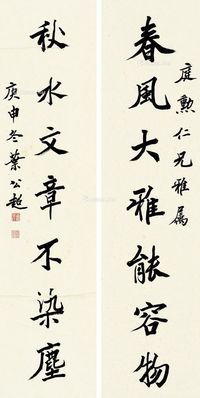 庭勲仁兄雅屬
春風大雅能容物
秋水文章不染塵
庚申冬葉公超